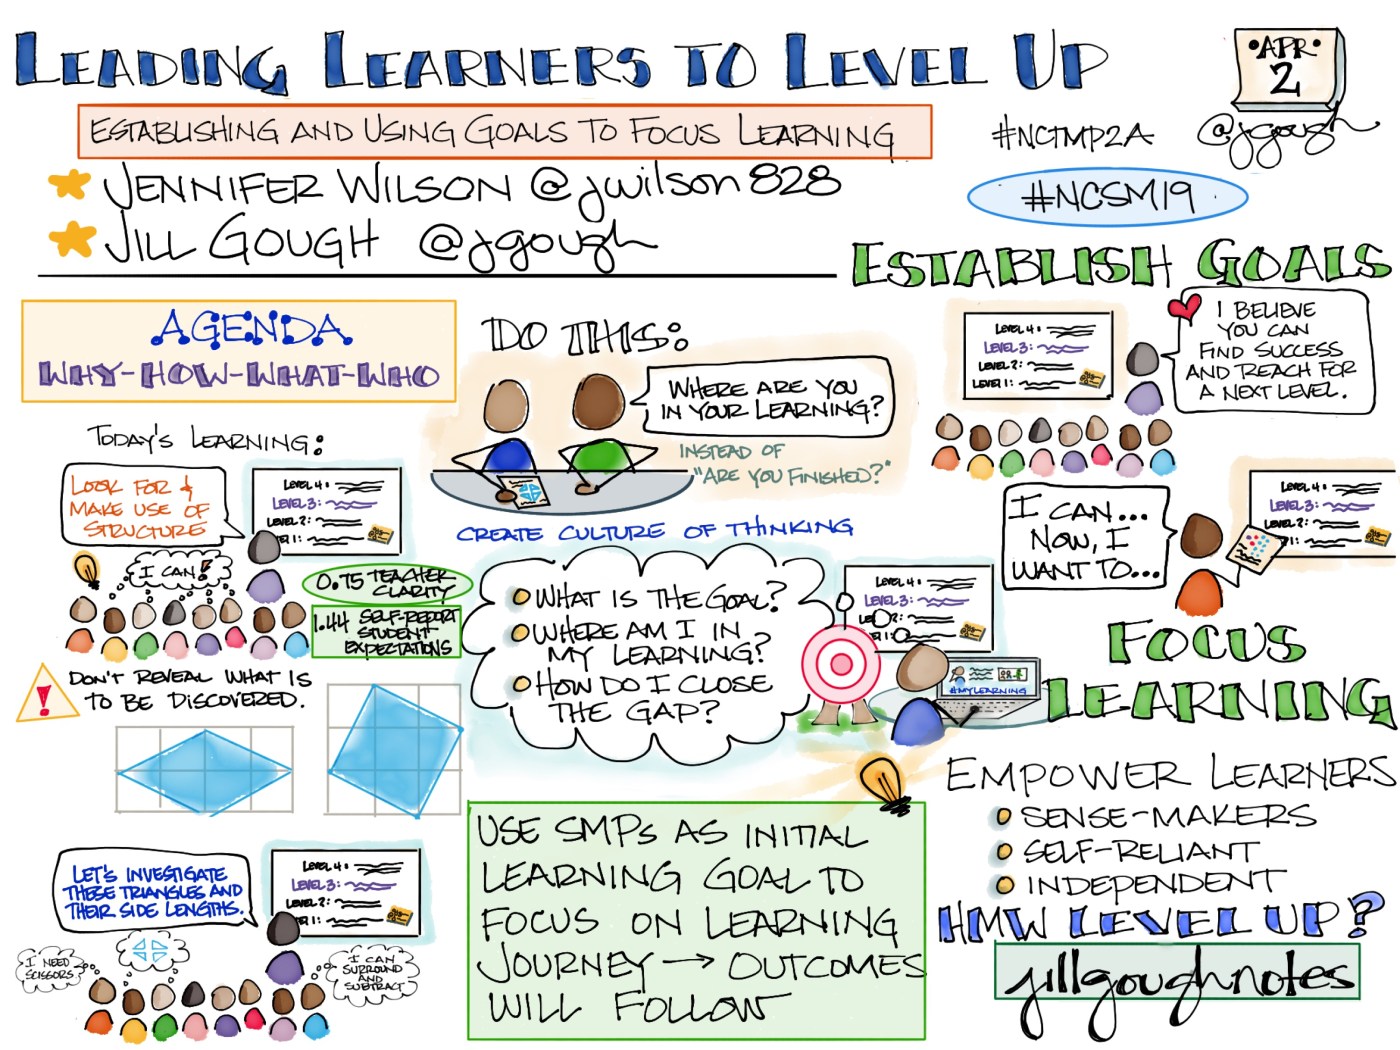 LEADING LEARNERS TO LEVEL UP
•APR•
2
@jgough
ESTABLISHING AND USING GOALS TO FOCUS LEARNING
#NCTMP2A
★ JENNIFER WILSON @jwilson828
★ JILL GOUGH @jgough
#NCSM19
ESTABLISH GOALS
LEVEL 4:
LEVEL 3:
LEVEL 2:
LEVEL 1:
I BELIEVE
YOU CAN
FIND SUCCESS
AND REACH FOR
A NEXT LEVEL.
AGENDA
WHY-HOW-WHAT-WHO
DO THIS:
WHERE ARE YOU
IN YOUR LEARNING?
INSTEAD OF
"ARE YOU FINISHED?"
CREATE CULTURE OF THINKING
TODAY'S LEARNING:
LOOK FOR &
MAKE USE OF
STRUCTURE
LEVEL 4:
LEVEL 3:
LEVEL 2:
1:
I CAN!
0.75 TEACHER
CLARITY
1.44 SELF-REPORT
STUDENT
EXPECTATIONS
I CAN...
NOW, I
WANT TO...
LEVEL 4:
LEVEL 3:
LEVEL 2:
1:
• WHAT IS THE GOAL?
• WHERE AM I IN
MY LEARNING?
• HOW DO I CLOSE
THE GAP?
LEVEL 4:
LEVEL 3:
1:
#MYLEARNING
FOCUS
LEARNING
!
DON'T REVEAL WHAT IS
TO BE DISCOVERED.
EMPOWER LEARNERS
• SENSE-MAKERS
• SELF-RELIANT
• INDEPENDENT
USE SMPs AS INITIAL
LEARNING GOAL TO
FOCUS ON LEARNING
JOURNEY → OUTCOMES
WILL FOLLOW
LET'S INVESTIGATE
THESE TRIANGLES AND
THEIR SIDE LENGTHS.
LEVEL 4:
LEVEL 3:
LEVEL 2:
1:
I NEED
SCISSORS
I CAN
SURROUND
AND
SUBTRACT
HMW LEVEL UP?
jillgoughnotes